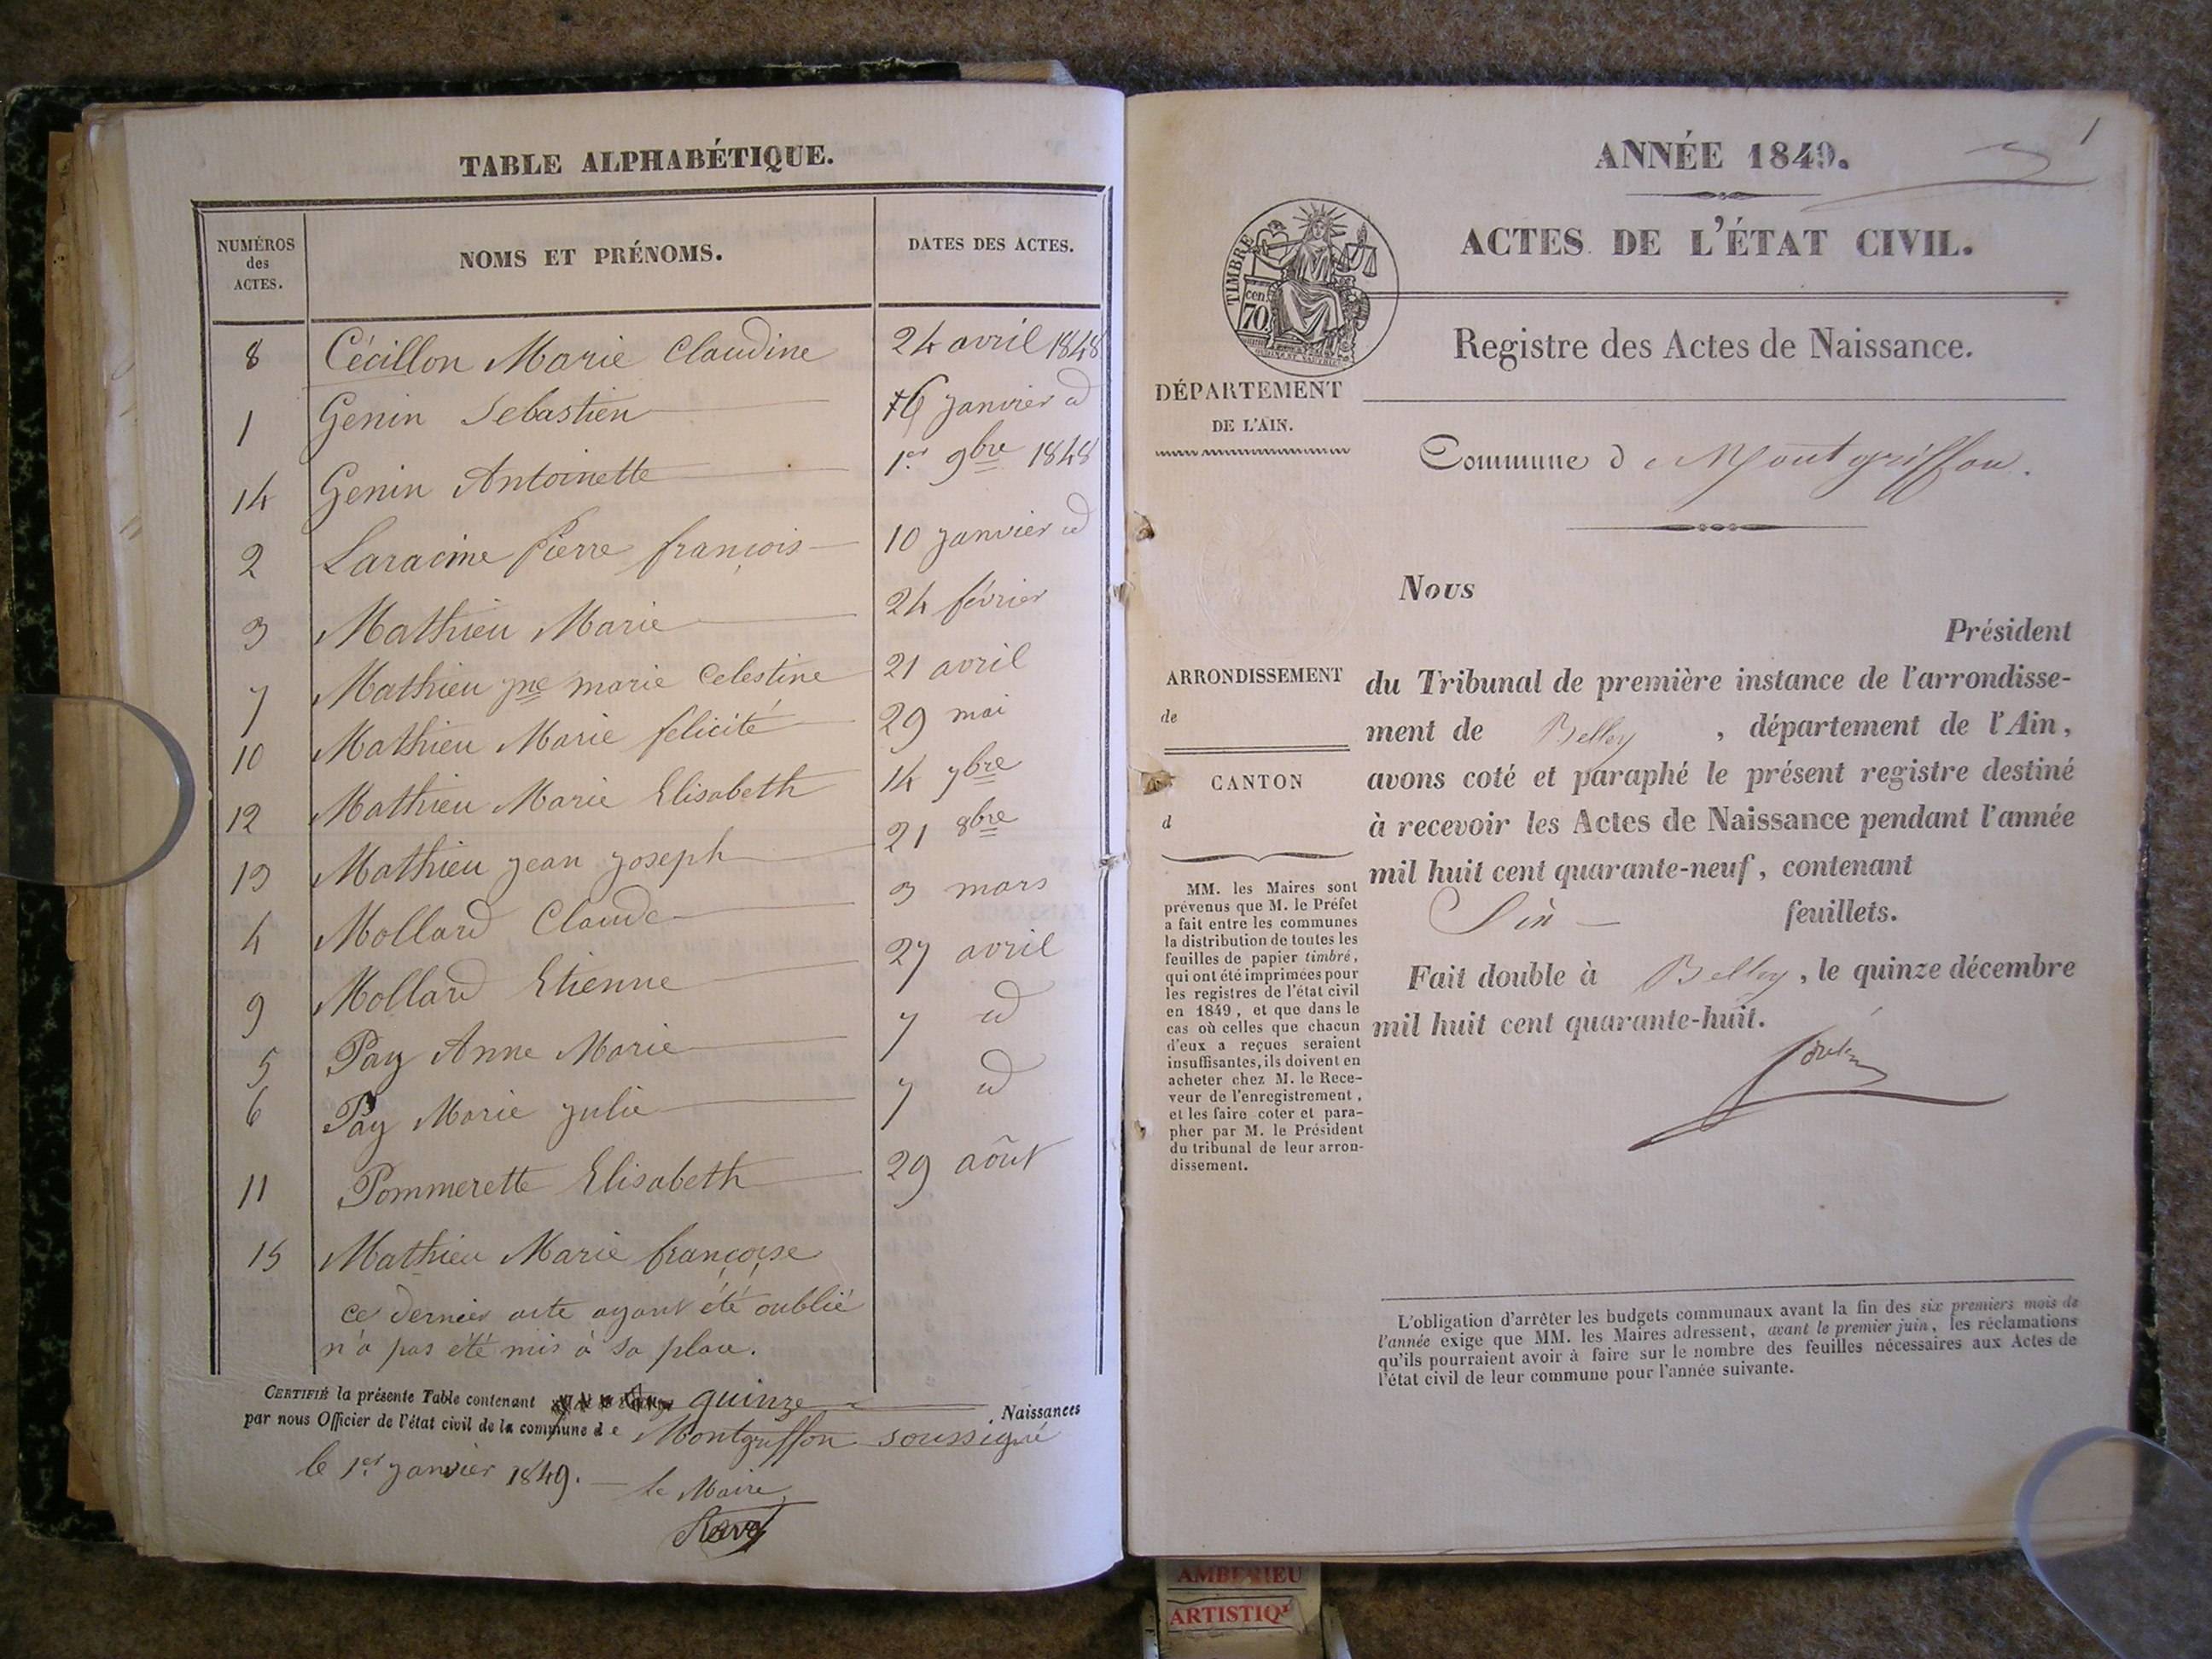 TABLE ALPHABÉTIQUE.
NUMÉROS des ACTES. NOMS ET PRÉNOMS. DATES DES ACTES.
8 Cécillon Marie Claudine 24 avril 1848
1 Genin Sebastien 6 janvier id
14 Genin Antoinette 1er 9bre 1848
2 Laracine Pierre françois 10 janvier id
3 Mathieu Marie 24 février
7 Mathieu jne marie Celestine 21 avril
10 Mathieu Marie félicité 29 mai
12 Mathieu Marie Elisabeth 14 7bre
13 Mathieu jean joseph 21 8bre
4 Mollard Claude 3 mars
9 Mollard Etienne 27 avril
5 Pay Anne Marie 7 id
6 Pay Marie julie 7 id
11 Pommerette Elisabeth 29 août
15 Mathieu Marie françoise
ce dernier acte ayant été oublié
n'a pas été mis à sa place.
CERTIFIÉ la présente Table contenant quinze Naissances
par nous Officier de l'état civil de la commune de Montgriffon soussigné
le 1er janvier 1849. Le Maire
1
ANNÉE 1849.
ACTES DE L'ÉTAT CIVIL.
TIMBRE
cen.
70
Registre des Actes de Naissance.
DÉPARTEMENT
DE L'AIN.
Commune d e Montgriffon.
Nous
Président
du Tribunal de première instance de l'arrondisse-
ment de Belley, département de l'Ain,
avons coté et paraphé le présent registre destiné
à recevoir les Actes de Naissance pendant l'année
mil huit cent quarante-neuf, contenant
Six feuillets.
Fait double à Belley, le quinze décembre
mil huit cent quarante-huit.
ARRONDISSEMENT
de
CANTON
d
MM. les Maires sont
prévenus que M. le Préfet
a fait entre les communes
la distribution de toutes les
feuilles de papier timbré,
qui ont été imprimées pour
les registres de l'état civil
en 1849, et que dans le
cas où celles que chacun
d'eux a reçues seraient
insuffisantes, ils doivent en
acheter chez M. le Rece-
veur de l'enregistrement,
et les faire coter et para-
pher par M. le Président
du tribunal de leur arron-
dissement.
L'obligation d'arrêter les budgets communaux avant la fin des six premiers mois de
l'année exige que MM. les Maires adressent, avant le premier juin, les réclamations
qu'ils pourraient avoir à faire sur le nombre des feuilles nécessaires aux Actes de
l'état civil de leur commune pour l'année suivante.
AMBERIEU
ARTISTIQ